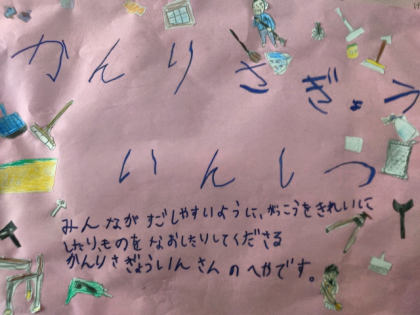 かんりさぎょう
いんしつ
みんながすごしやすいように、がっこうをきれいに
したり、ものをなおしたりしてくださる
かんりさぎょういんさんのへやです。